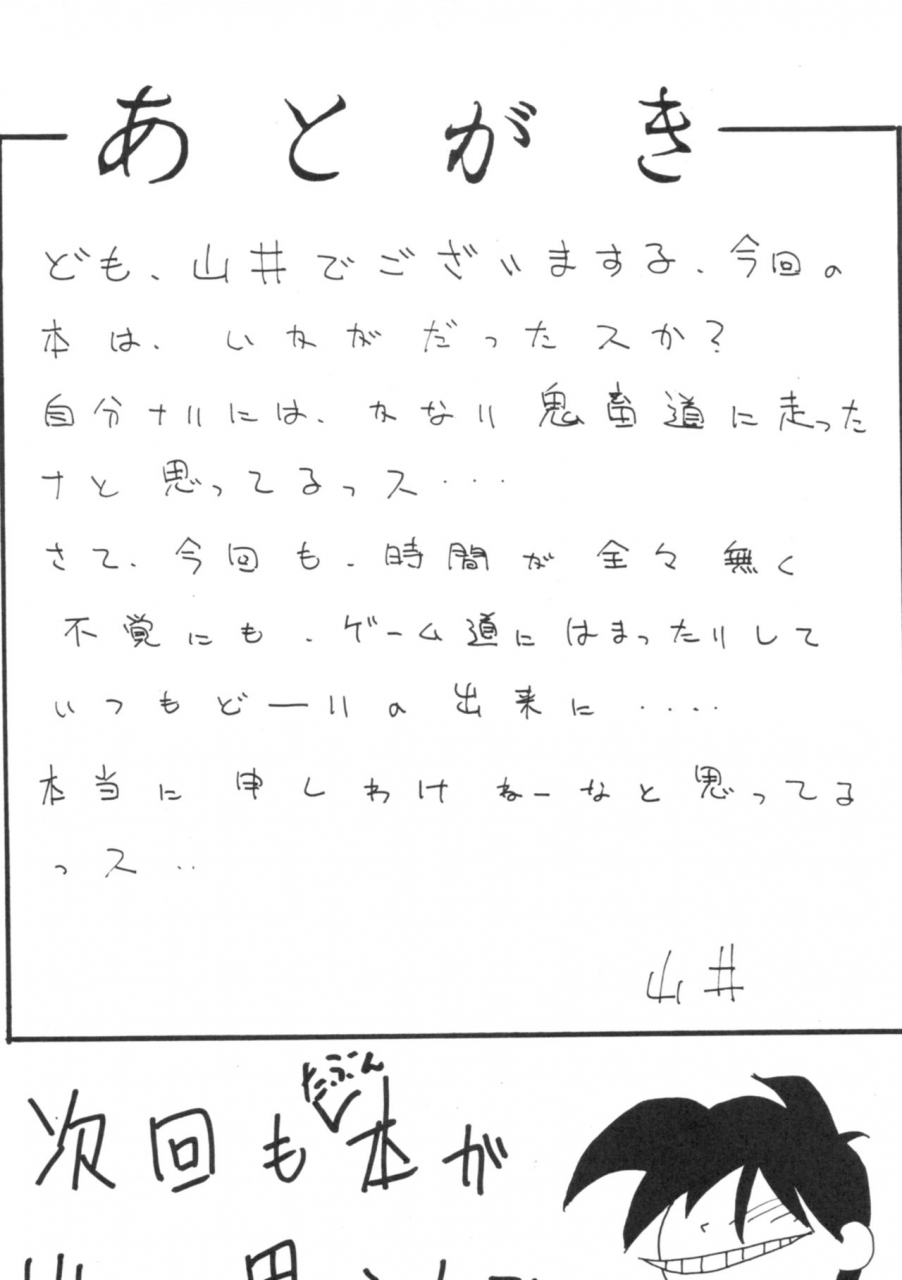 あとがき
ども、山井でございまする、今回の
本は、いかがだったスか?
自分ナリには、かなり鬼畜道に走った
ナと思ってるっス・・・
さて、今回も、時間が全々無く
不覚にも、ゲーム道にはまったりして
いつもどーりの出来に・・・・
本当に申しわけねーなと思ってる
っス‥
山井
たぶん
次回も本が